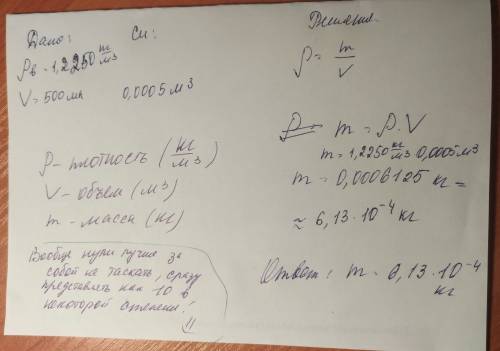 Дано:
ρв = 1,2250 кг/м3
V = 500 мл
Си:
0,0005 м3
ρ - плотность (кг/м3)
V - объём (м3)
m - масса (кг)
Вообще нули лучше за
собой не таскать, сразу
представлять как 10 в
некоторой степени!
Решение.
ρ = m/V
m = ρ·V
m = 1,2250 кг/м3 · 0,0005 м3
m = 0,0006125 кг =
≈ 6,13·10⁻⁴ кг
Ответ: m = 6,13·10⁻⁴
кг